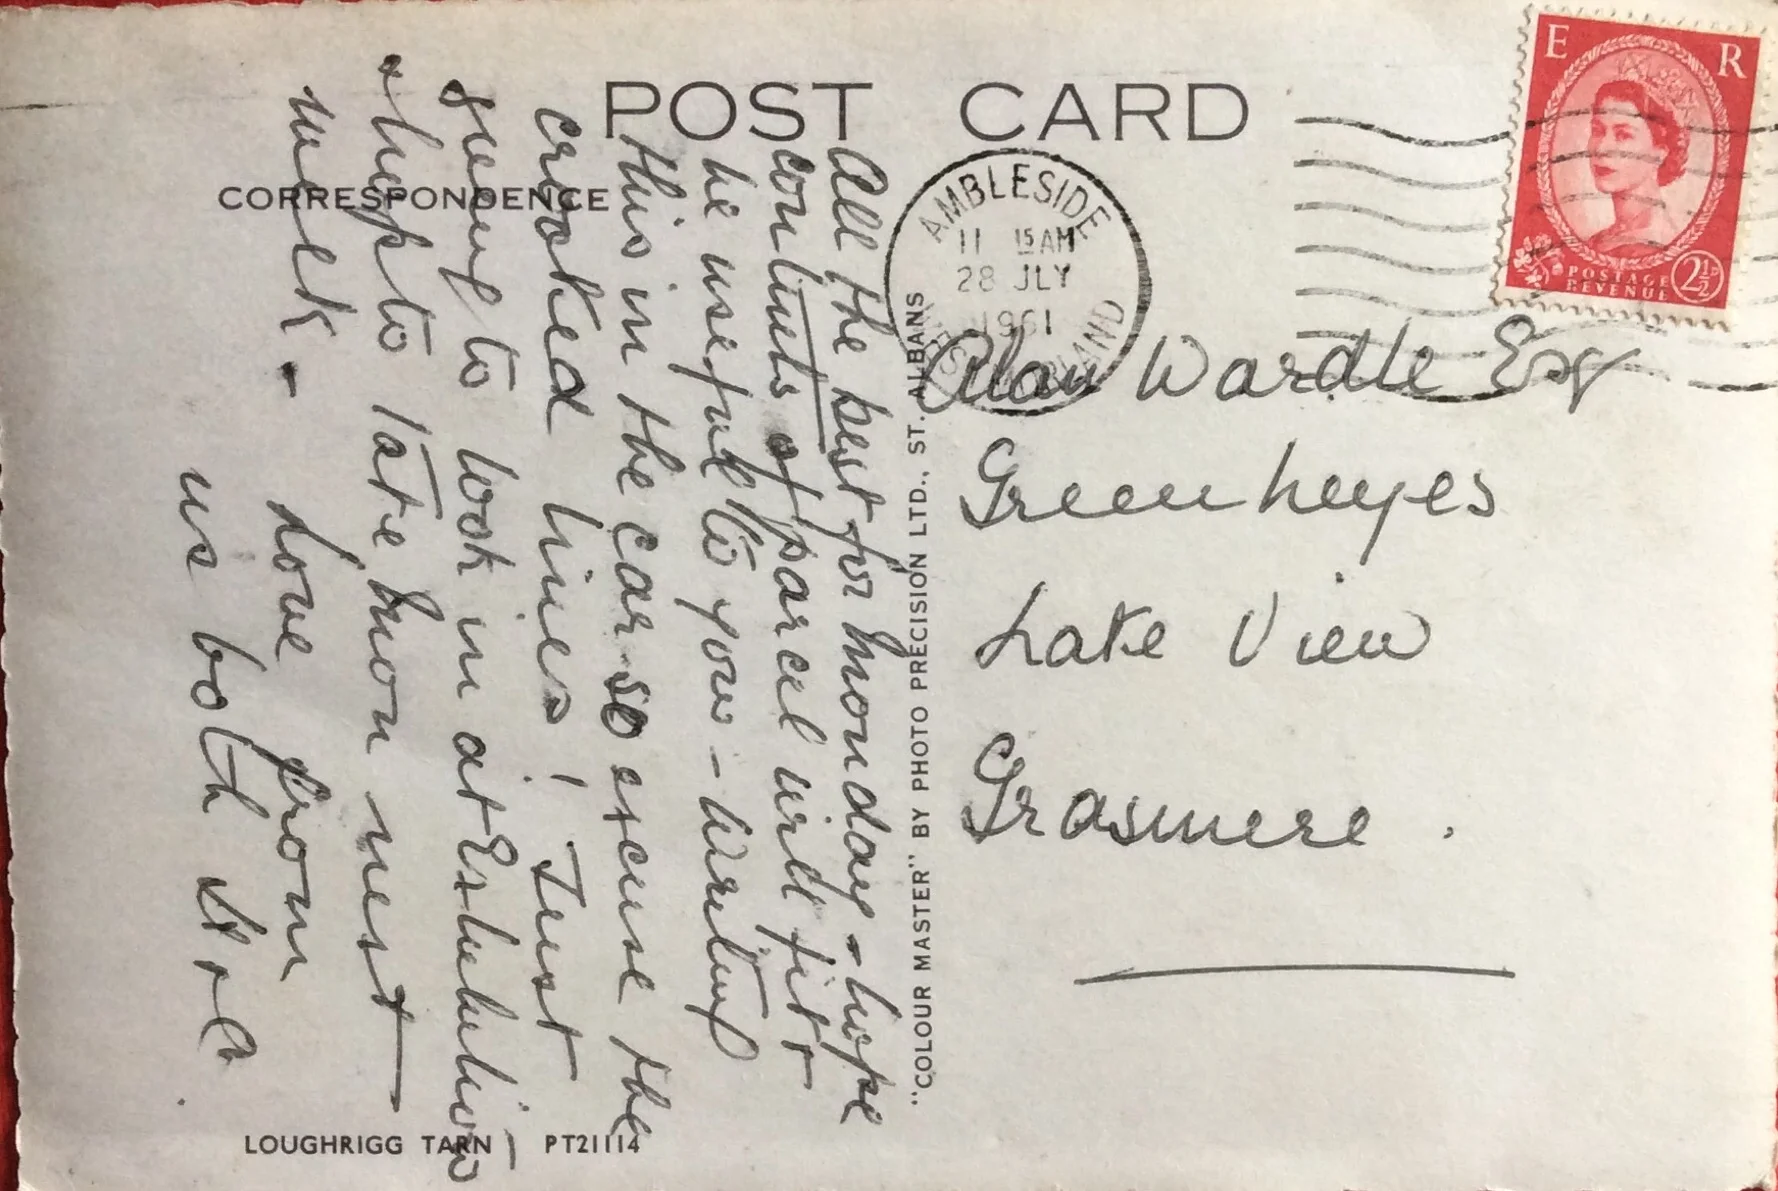 POST CARD
CORRESPONDENCE
AMBLESIDE
11 15 AM
28 JLY
1961
WESTMORLAND
E R
POSTAGE
REVENUE
2½D
All the best for monday - hope
contents of parcel will fit +
be useful to you - Writing
this in the car - so excuse the
crooked lines! Just
going to look in at Exhibition
+ hope to late know next
week - Love from
us both
"COLOUR MASTER" BY PHOTO PRECISION LTD., ST. ALBANS
Alan Wardle Esq
Greenheyes
Lake View
Grasmere.
LOUGHRIGG TARN PT21114